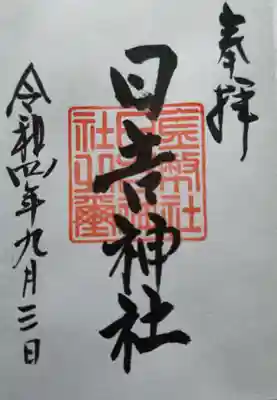 奉拝
日吉神社
令和四年九月三日